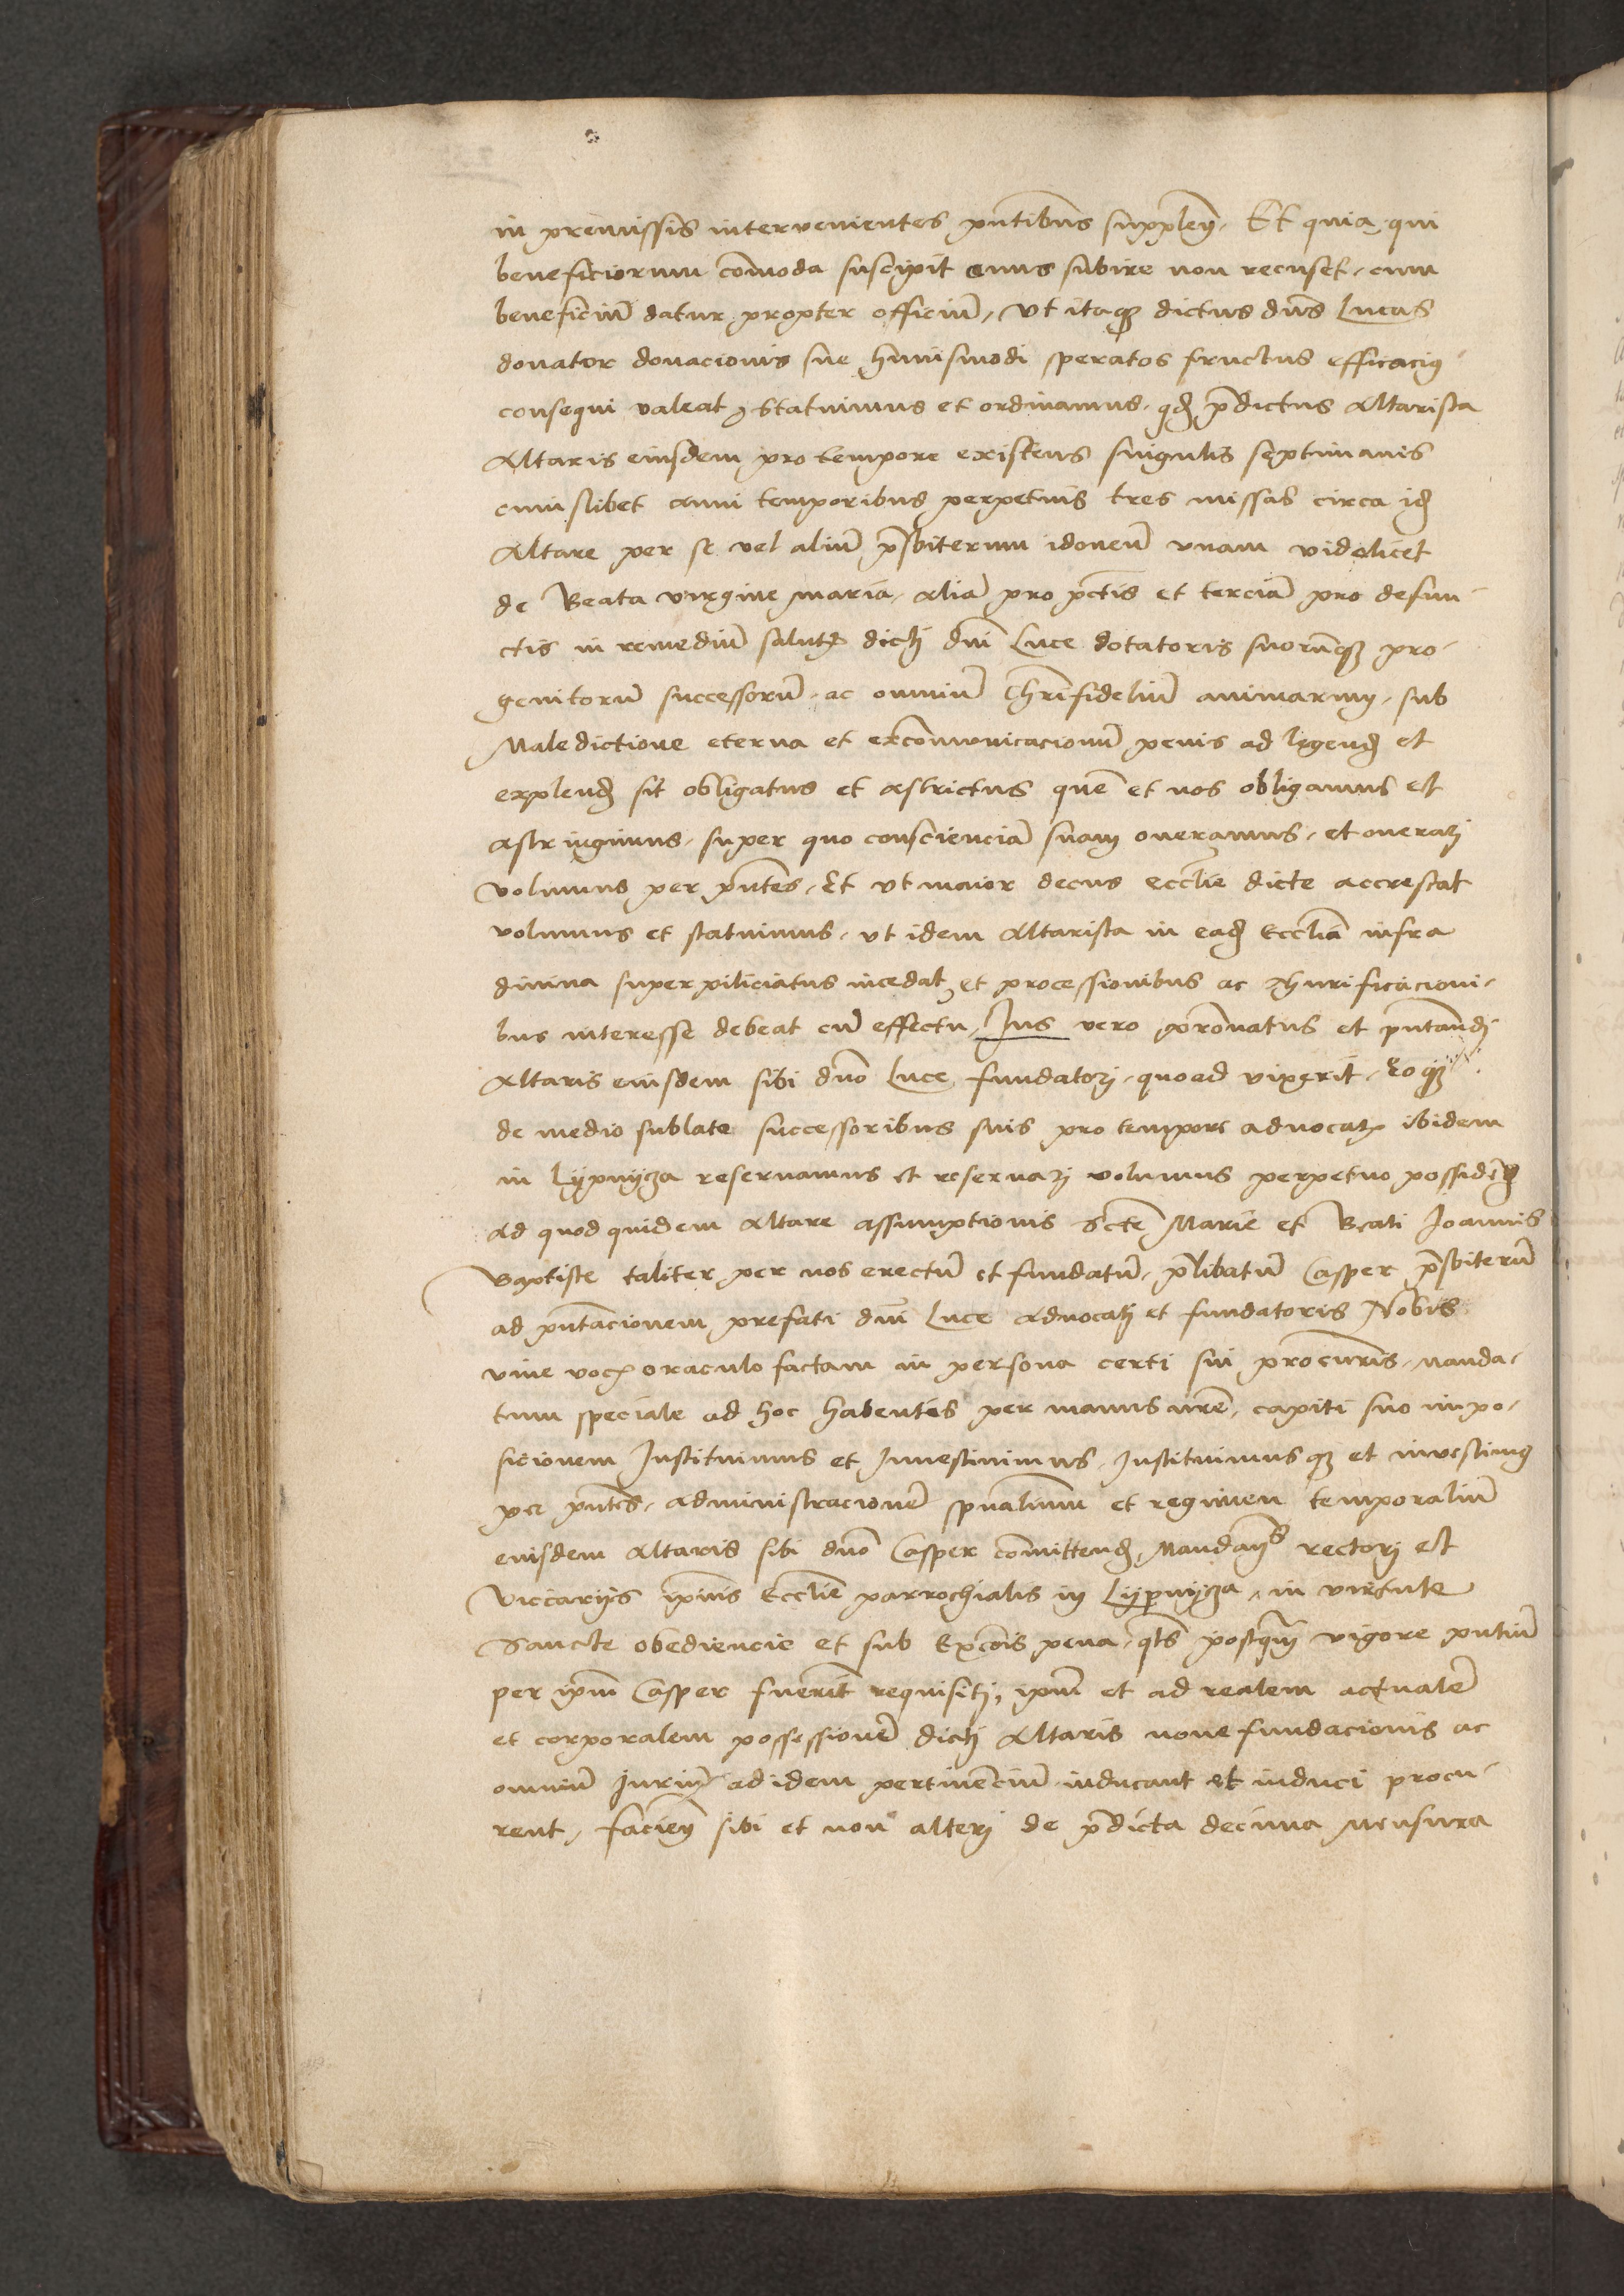 in premissis intervenientes pntibus supplen. Et quia qui
beneficiorum comoda suscipit onus subire non recuset, cum
beneficium datur propter officium, Ut itaq dictus dns Lucas
donator donacionis sue huiusmodi speratos fructus efficaciq
consequi valeat, Statuimus et ordinamus, qd pdictus Altarista
Altaris eiusdem pro tempore existens singulis septimanis
cuiuslibet anni temporibus perpetuis tres missas circa id
Altare per se vel aliu psbiterum idoneu unam videlicet
de Beata virgine maria, alia pro pctis et tercia pro defun-
ctis in remediu salutis dicti dni Luce dotatoris suorumq pro-
genitoru successoru, ac omniu Chrifideliu animarum, sub
Maledictione eterna et excomunicacionu penis ad legend et
explend sit obligatus et astrictus que et nos obligamus et
astringimus, super quo consciencia suam oneramus, et onerari
volumus per pntes, Et ut maior decus ecclie dicte accrescat
volumus et statuimus, ut idem Altarista in ead Ecclia infra
divina superpiliciatus incedat, et processionibus ac thurificacioni-
bus interesse debeat cu effectu, Jus vero pronatus et pntandi
Altaris eiusdem sibi dno Luce fundatori, quoad vixerit, Eoq
de medio sublato successoribus suis pro tempore advocatis ibidem
in Lypnycza reservamus et reservari volumus perpetuo possidend
Ad quod quidem Altare assumptionis Scte Marie et Beati Joannis
Baptiste taliter per nos erectu et fundatu, plibatu Casper psbiteru
ad pntacionem prefati dni Luce advocati et fundatoris Nobis
vive vocis oraculo factam in persona certi sui procuris, manda-
tum speciale ad hoc habentis per manus nre, capiti suo impo-
sicionem Instituimus et Investiuimus, Instituimusq et investimq
per pntes, administracione spualium et regimen temporaliu
eiusdem Altaris sibi dno Casper comittend, Mandans rectori et
viccarijs ipius Ecclie parrochialis in Lypnycza, in virtute
Sancte obediencie et sub Excois pena, qts postqm vigore pntiu
per ipm Casper fuerint requisiti, ipm et ad realem actuale
et corporalem possessione dicti Altaris nove fundacionis ac
omniu Juriu ad idem pertinenciu inducant et induci procu-
rent, facien sibi et non alteri de pdicta decima Mensura